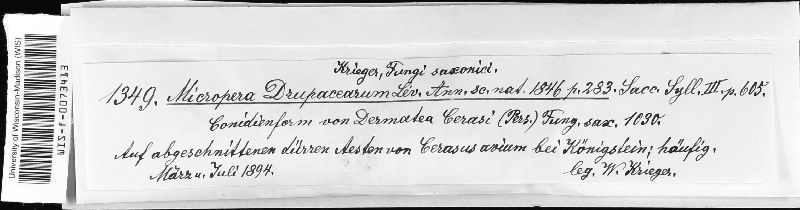 University of Wisconsin-Madison (WIS)
WIS-f-0073413
Krieger, Fungi saxonici.
1349. Micropera Drupacearum Lév. Ann. sc. nat. 1846 p. 283. Sacc. Syll. III. p. 605.
Conidienform von Dermatea Cerasi (Pers.) Fung. sax. 1030.
Auf abgeschnittenen dürren Aesten von Cerasus avium bei Königstein; häufig.
März u. Juli 1894. leg. W. Krieger.